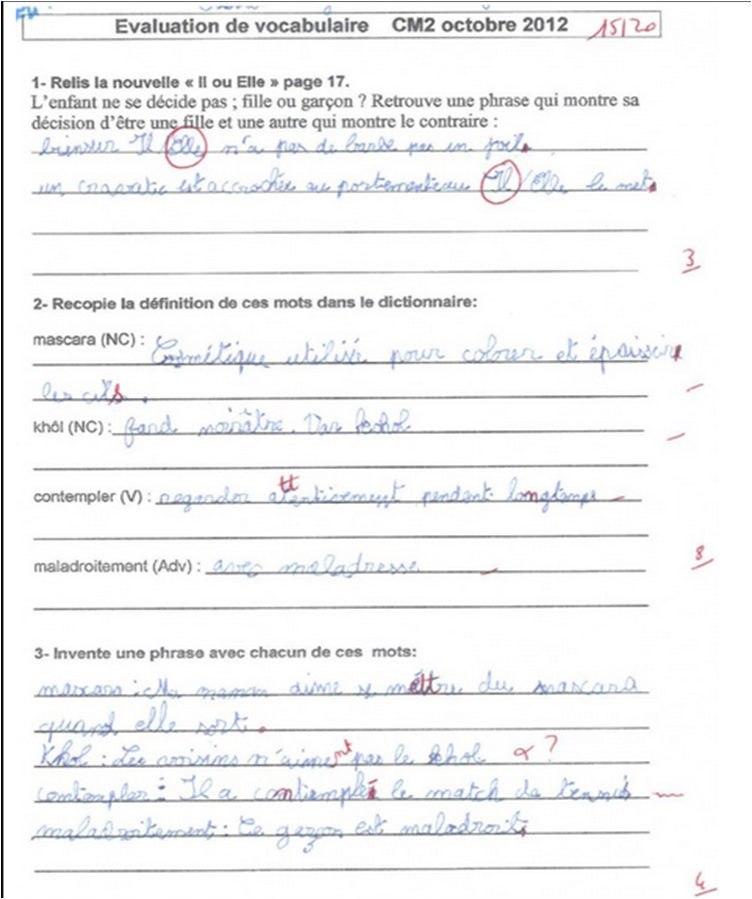 Evaluation de vocabulaire CM2 octobre 2012 15/20
1- Relis la nouvelle « Il ou Elle » page 17.
L'enfant ne se décide pas ; fille ou garçon ? Retrouve une phrase qui montre sa
décision d'être une fille et une autre qui montre le contraire :
Il Elle n'a pas de barbe pas un poil.
un cravate est accrochée au portemanteau Il/Elle le met.
3
2- Recopie la définition de ces mots dans le dictionnaire:
mascara (NC) : Cosmétique utilisé pour colorer et épaissir
les cils.
khôl (NC) : fard noirâtre. Var kohol
contempler (V) : regarder attentivement pendant longtemps
8
maladroitement (Adv) : avec maladresse
3- Invente une phrase avec chacun de ces mots:
mascara : Ma maman aime se mettre du mascara
quand elle sort.
Khol : Les voisins n'aiment pas le khol ?
contempler : Il a contemplé le match de tennis
maladroitement : Ce garçon est maladroit.
4